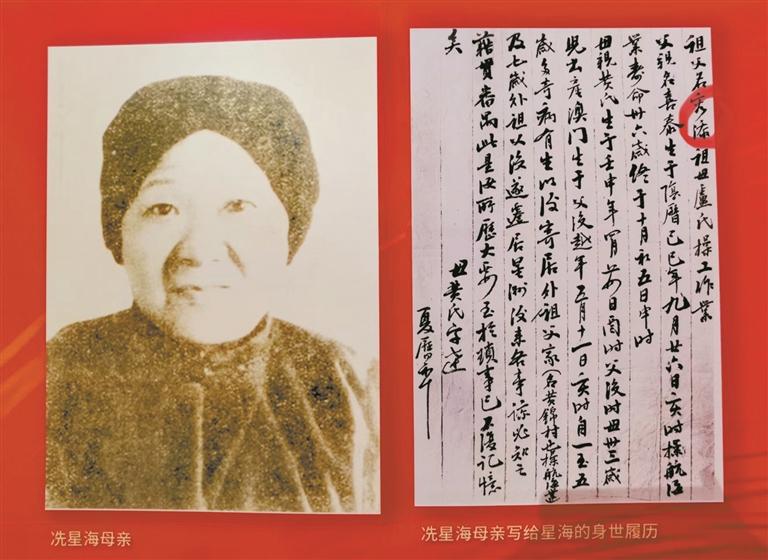 祖父名秀添祖母盧氏操工作業
父親名喜泰生于陰曆己巳年九月廿六日亥时操航海
業壽命卅六歲終于十月初五日申时
母親黃氏生于壬申年 日酉时父沒时母卅三歲
兒出産澳门生于父沒越年五月十一日亥时自一至五
歲多奇病有生以沒寄居外祖父家(名黄錦村 操航海業
及七歲外祖父沒遂遷居星洲後來各事諒必知之
籍貫番禺此是汝所歷大畧至於瑣事已不復記憶
矣
母黃氏字達
夏曆
冼星海母亲
冼星海母亲写给星海的身世履历